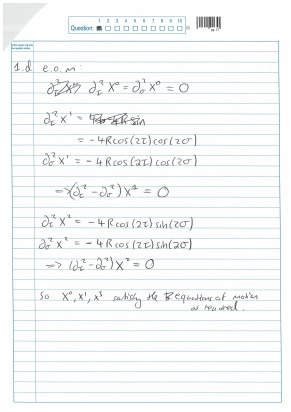 Question: 1 2 3 4 5 6 7 8 9 10
1.d e.o.m:
∂τ² X⁰ = ∂σ² X⁰ = 0
∂τ² X¹ =
= -4R cos(2τ) cos(2σ)
∂σ² X¹ = -4R cos(2τ) cos(2σ)
=> (∂τ² - ∂σ²) X¹ = 0
∂τ² X² = -4R cos(2τ) sin(2σ)
∂σ² X² = -4R cos(2τ) sin(2σ)
=> (∂τ² - ∂σ²) X² = 0
So X⁰, X¹, X² satisfy the equations of motion
as required.